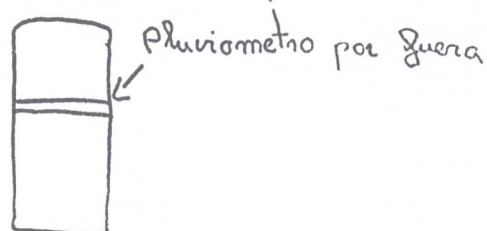 Pluviometro por fuera